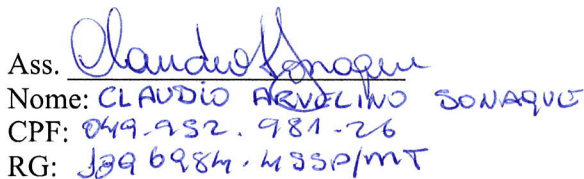 Ass. Claudio Sonaque
Nome: CLAUDIO ARVELINO SONAQUE
CPF: 049.952.981-26
RG: